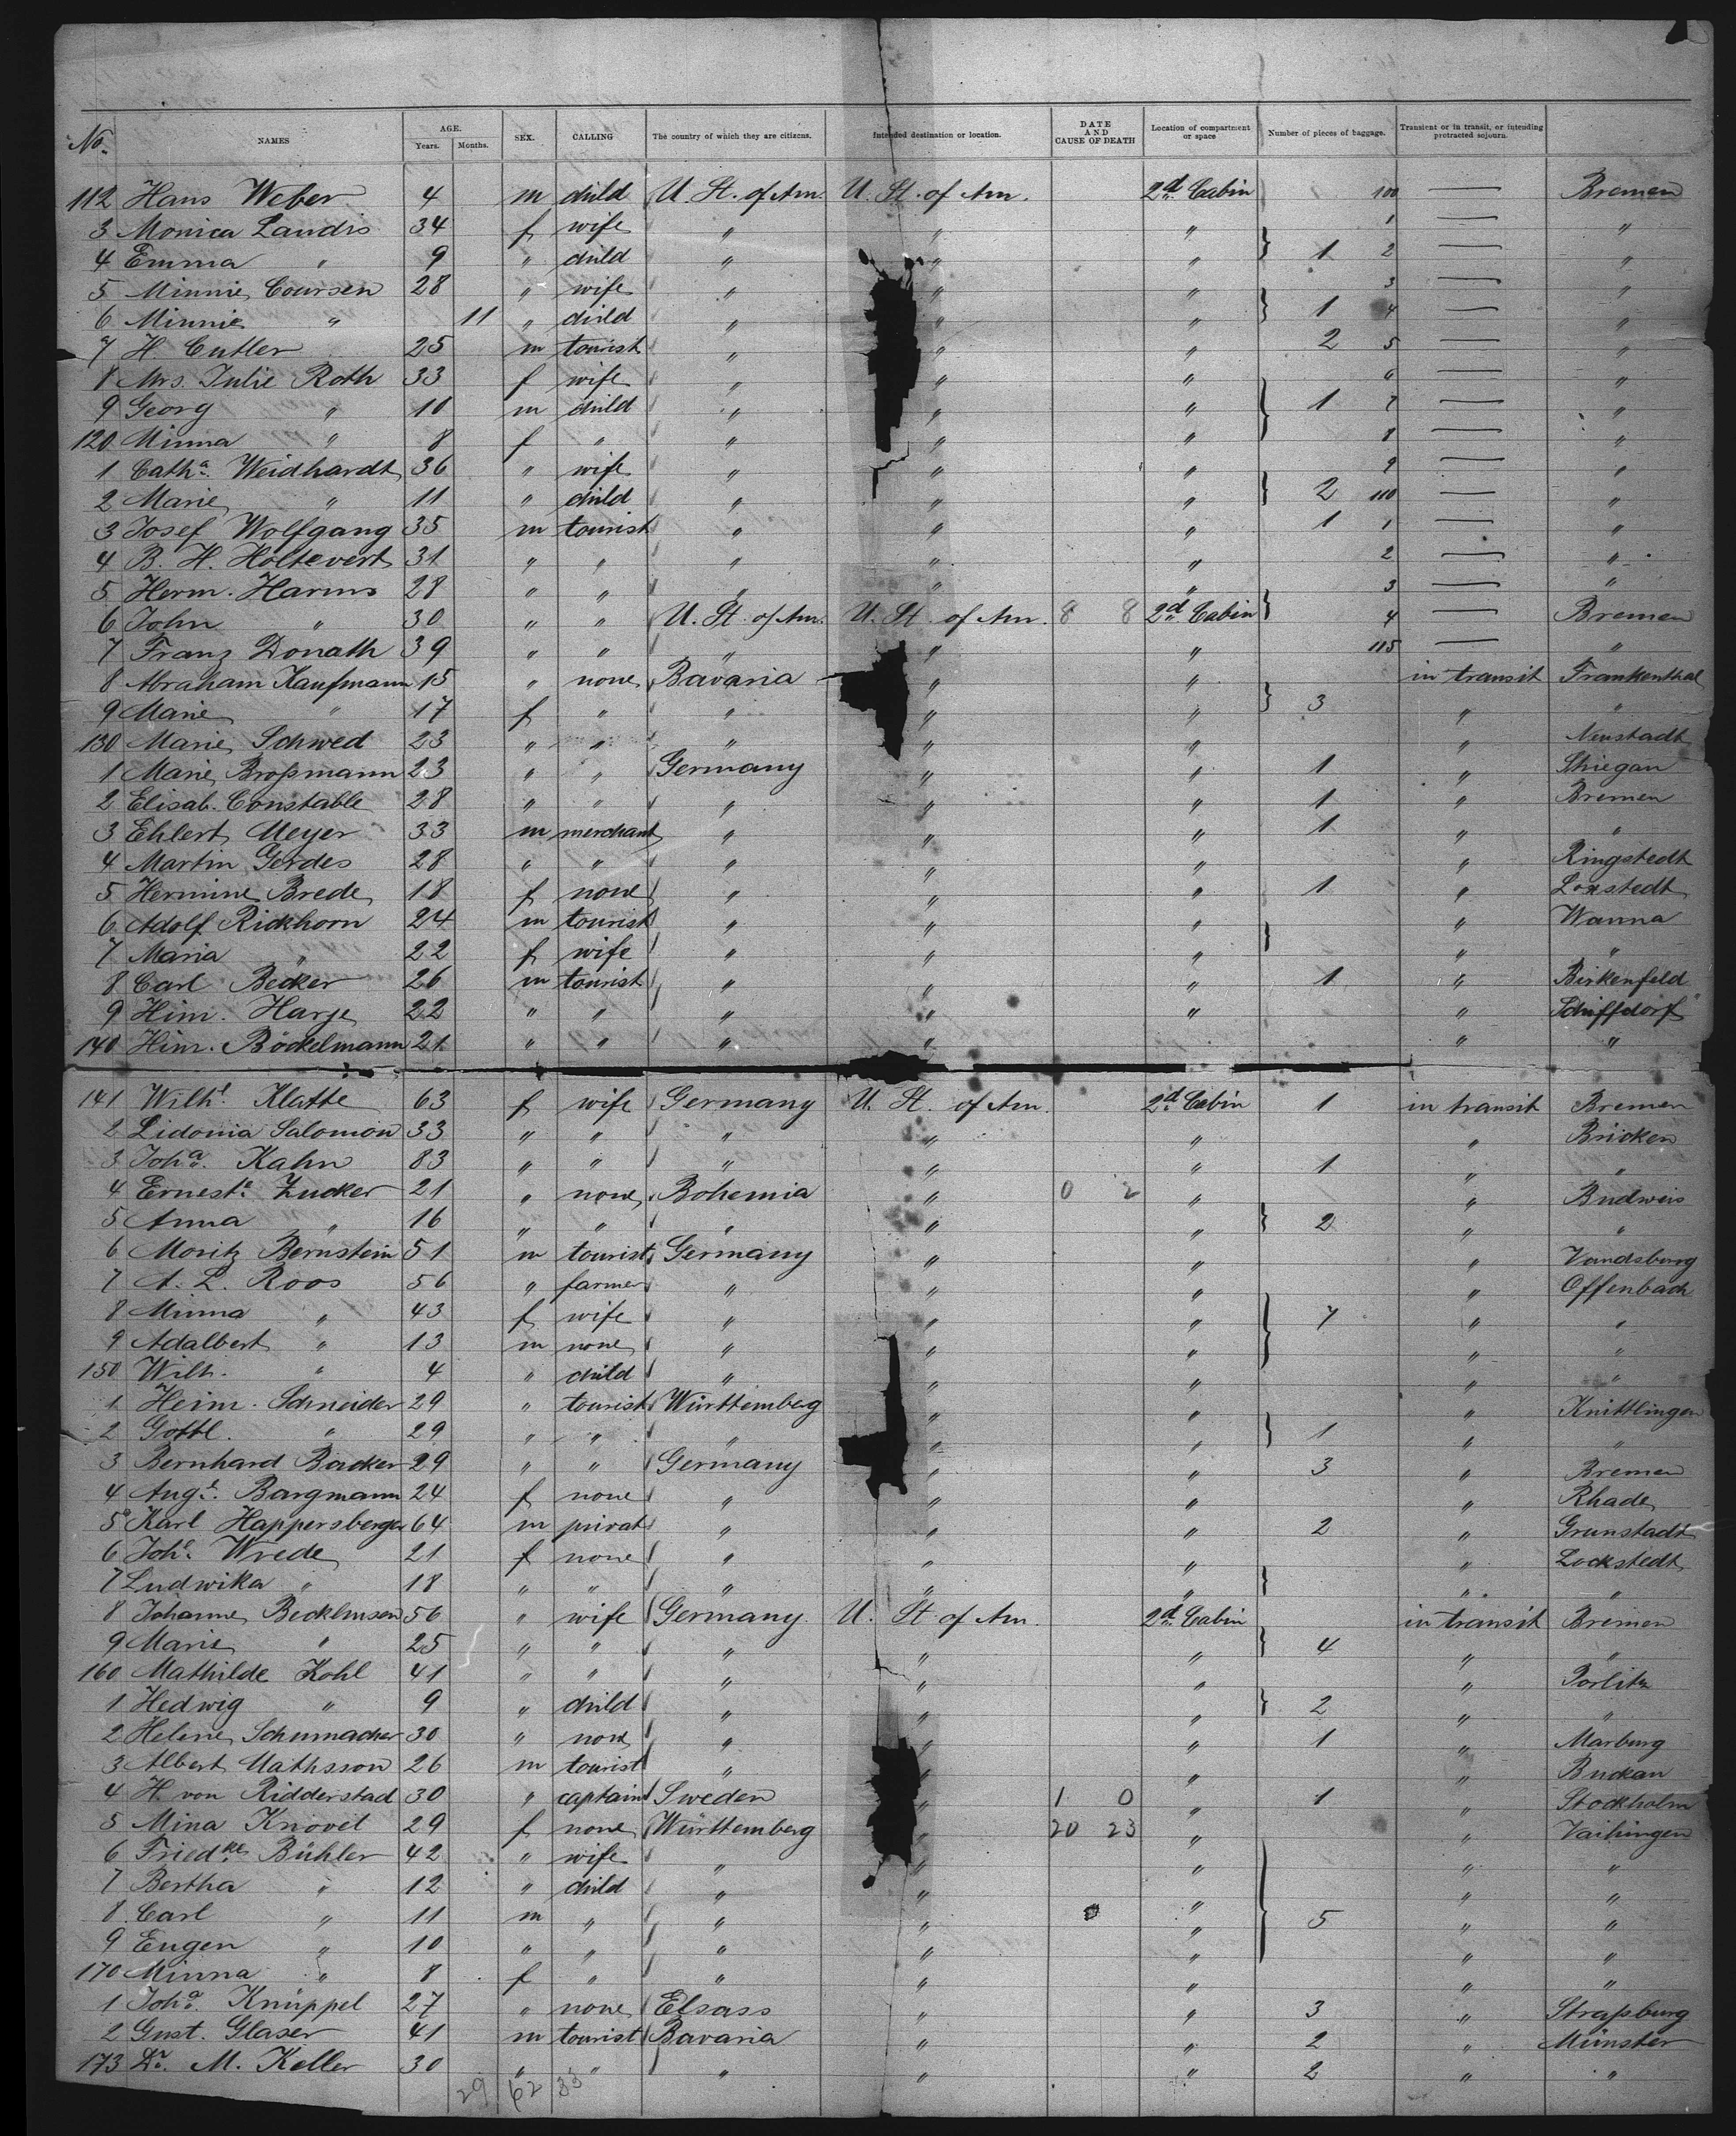 No. NAMES AGE. Years. Months. SEX. CALLING The country of which they are citizens. Intended destination or location. DATE AND CAUSE OF DEATH Location of compartment or space Number of pieces of baggage. Transient or in transit, or intending protracted sojourn.
112 Hans Weber 4 m child U. St. of Am. U. St. of Am. 2d Cabin 100 — Bremen
3 Monica Landis 34 f wife " " " 1 — "
4 Emma " 9 " child " " " } 1 2 — "
5 Minnie Coursen 28 " wife " " " 3 — "
6 Minnie " 11 " child " " " } 1 4 — "
7 H. Cutler 25 m tourist " " " 2 5 — "
8 Mrs. Julie Roth 33 f wife " " " 6 — "
9 Georg " 10 m child " " " } 1 7 — "
120 Minna " 8 f " " " " 8 — "
1 Catha. Weidhardt 36 " wife " " " 9 — "
2 Marie " 11 " child " " " } 2 110 — "
3 Josef Wolfgang 35 m tourist " " " 1 1 — "
4 B. H. Holtevert 31 " " " " " 2 — "
5 Herm. Harms 28 " " " " " 3 — "
6 John " 30 " " U. St. of Am. U. St. of Am. 8 8 2d Cabin } 4 — Bremen
7 Franz Donath 39 " " " " " 115 — "
8 Abraham Kaufmann 15 " none Bavaria " " in transit Frankenthal
9 Marie " 17 f " " " " } 3 " "
130 Marie Schwed 23 " " " " " " Neustadt
1 Marie Broßmann 23 " " Germany " " 1 " Striegau
2 Elisab. Constable 28 " " " " " 1 " Bremen
3 Ehlert Meyer 33 m merchant " " " 1 " "
4 Martin Gerdes 28 " " " " " " Ringstedt
5 Hermine Brede 18 f none " " " 1 " Loxstedt
6 Adolf Rickhorn 24 m tourist " " " " Wanna
7 Maria " 22 f wife " " " } " "
8 Carl Becker 26 m tourist " " " 1 " Birkenfeld
9 Hinr. Harje 22 " " " " " " Schiffdorf
140 Hinr. Böckelmann 21 " " " " " "
141 Wilhe. Klatte 63 f wife Germany U. St. of Am. 2d Cabin 1 in transit Bremen
2 Lidonia Salomon 33 " " " " " " Bricken
3 Joha. Kahn 83 " " " " " 1 " "
4 Erneste. Zucker 21 " none Bohemia " 0 2 " " Budweis
5 Anna " 16 " " " " " } 2 " "
6 Moritz Bernstein 51 m tourist Germany " " " Vandsburg
7 A. L. Roos 56 " farmer " " " " Offenbach
8 Minna " 43 f wife " " " } 7 " "
9 Adalbert " 13 m none " " " " "
150 Wilh. " 4 " child " " " " "
1 Heinr. Schneider 29 " tourist Württemberg " " " Knittlingen
2 Gottl. " 29 " " " " " } 1 " "
3 Bernhard Backer 29 " " Germany " " 3 " Bremen
4 Auge. Bargmann 24 f none " " " " Rhade
5 Karl Happersberger 64 m privat " " " 2 " Grunstadt
6 Johe. Wrede 21 f none " " " " Lockstedt
7 Ludwika " 18 " " " " " } " "
8 Johanne Becklmsen 56 " wife Germany U. St. of Am. 2d Cabin in transit Bremen
9 Marie " 25 " " " " " } 4 " "
160 Mathilde Kohl 41 " " " " " " Porlitz
1 Hedwig " 9 " child " " " } 2 " "
2 Helene Schumacher 30 " none " " " 1 " Marburg
3 Albert Mathsson 26 m tourist " " " " Buckau
4 H. von Ridderstad 30 " captain Sweden " 1 0 " 1 " Stockholm
5 Mina Knovel 29 f none Württemberg " 20 23 " " Vaihingen
6 Friedke. Bühler 42 " wife " " " " "
7 Bertha " 12 " child " " " " "
8 Carl " 11 m " " " 0 " } 5 " "
9 Eugen " 10 " " " " " " "
170 Minna " 8 f " " " " " "
1 Joha. Knüppel 27 " none Elsass " " 3 " Straßburg
2 Gust. Glaser 41 m tourist Bavaria " " 2 " Münster
173 Dr. M. Keller 30 " " " " " 2 " "
29 62 33